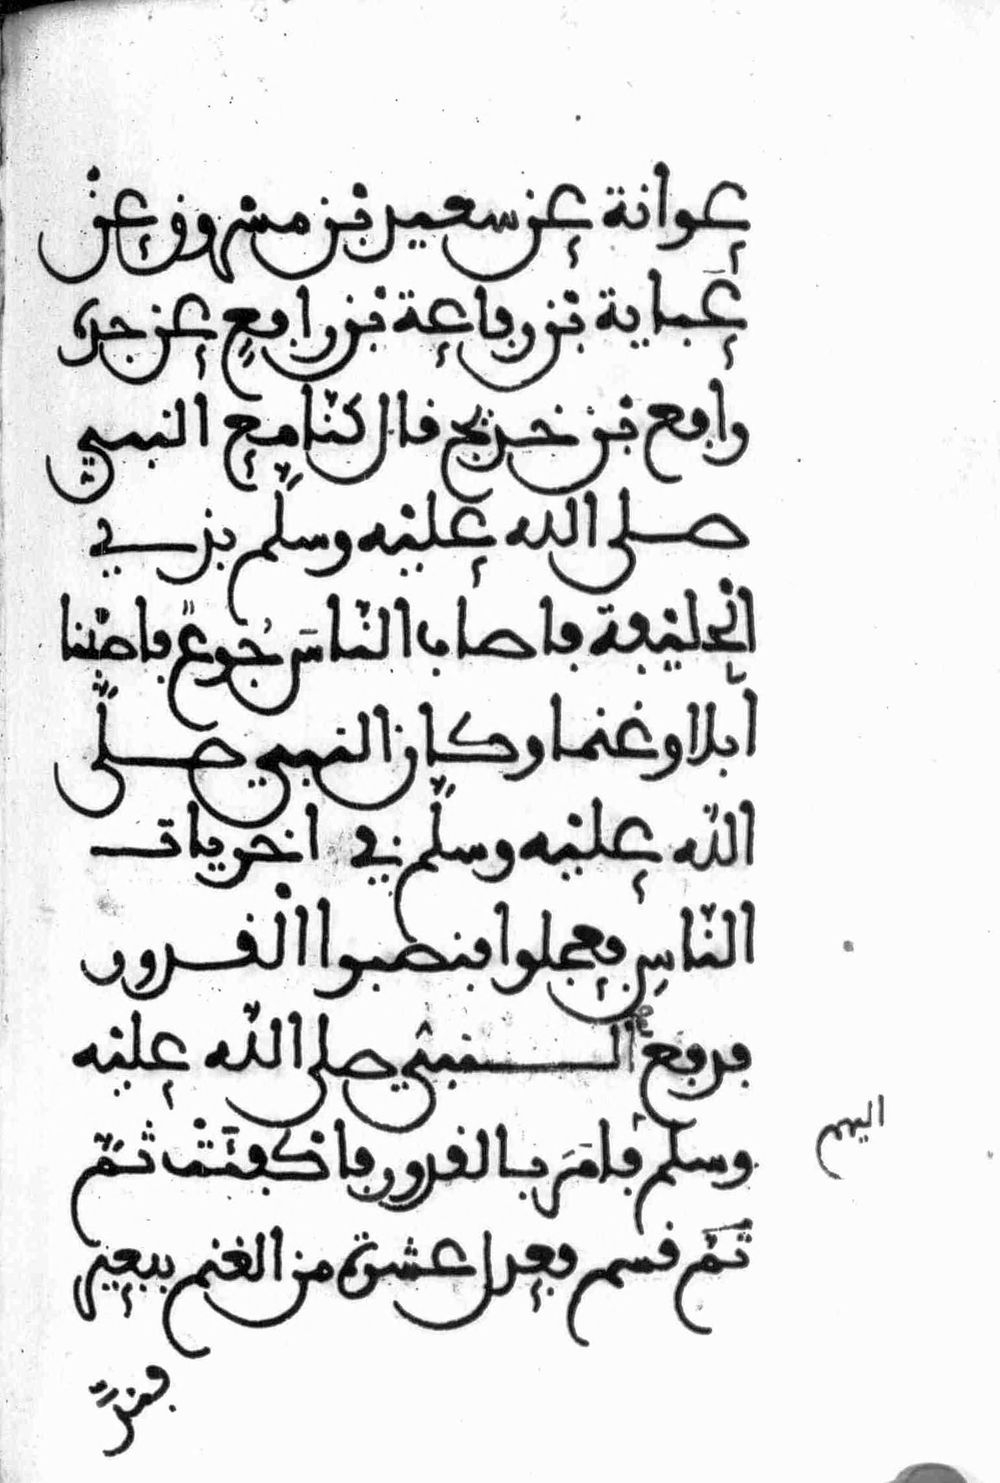 عوانة عن سعيد بن مسروق عن
عباية بن رفاعة بن رافع عن جده
رافع بن خديج قال كنّا مع النبي
صلى الله عليه وسلم بذي
الحليفة فاصاب النّاسَ جُوعٌ فاصبنا
ابلا وغنما وكان النبي صلّى
اللّه عليه وسلّم في اخريات
النّاسِ فعجلوا فنصبوا القدور
فدفع اليهم النبي صلى اللّه عليه
وسلم فامَرَ بالقدور فاكفِئَتْ ثمّ
ثمّ قسم فعدل عشرة من الغنم ببعير
فندّ